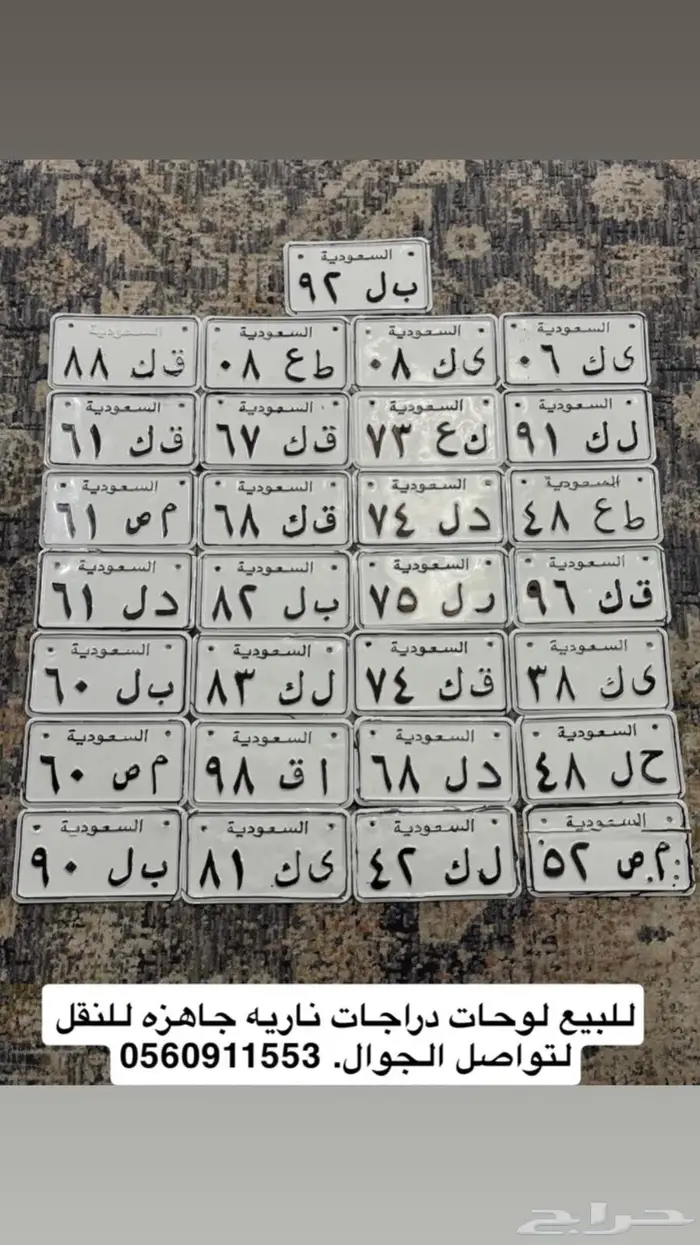 السعودية
ب ل ٩٢
السعودية
ى ك ٠٦
السعودية
ى ك ٠٨
السعودية
ط ع ٠٨
السعودية
ق ك ٨٨
السعودية
ل ك ٩١
السعودية
ك ع ٧٣
السعودية
ق ك ٦٧
السعودية
ق ك ٦١
السعودية
ط ع ٤٨
السعودية
د ل ٧٤
السعودية
ق ك ٦٨
السعودية
م ص ٦١
السعودية
ق ك ٩٦
السعودية
ر ل ٧٥
السعودية
ب ل ٨٢
السعودية
د ل ٦١
السعودية
ى ك ٣٨
السعودية
ق ك ٧٤
السعودية
ل ك ٨٣
السعودية
ب ل ٦٠
السعودية
ح ل ٤٨
السعودية
د ل ٦٨
السعودية
ا ق ٩٨
السعودية
م ص ٦٠
السعودية
م ص ٥٢
السعودية
ل ك ٤٢
السعودية
ى ك ٨١
السعودية
ب ل ٩٠
للبيع لوحات دراجات ناريه جاهزه للنقل
لتواصل الجوال. 0560911553
حراج